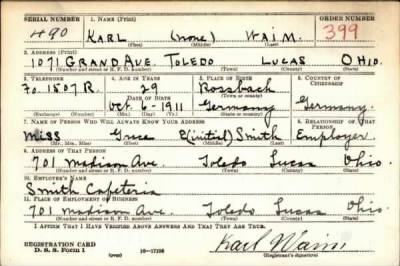 SERIAL NUMBER 1. NAME (Print) ORDER NUMBER
490 KARL (none) WAIM. 399
(First) (Middle) (Last)
2. ADDRESS (Print)
1071 GRAND AVE. TOLEDO LUCAS OHIO.
(Number and street or R. F. D. number) (Town) (County) (State)
3. TELEPHONE 4. AGE IN YEARS 5. PLACE OF BIRTH 6. COUNTRY OF CITIZENSHIP
Fo. 1507 R. 29 Rossbach
DATE OF BIRTH (Town or county)
Oct. 6 - 1911 Germany Germany.
(Exchange) (Number) (Mo.) (Day) (Yr.) (State or country)
7. NAME OF PERSON WHO WILL ALWAYS KNOW YOUR ADDRESS 8. RELATIONSHIP OF THAT PERSON
Miss Grace E(initial) Smith Employer
(Mr., Mrs., Miss) (First) (Middle) (Last)
9. ADDRESS OF THAT PERSON
701 Madison Ave. Toledo Lucas Ohio
(Number and street or R. F. D. number) (Town) (County) (State)
10. EMPLOYER'S NAME
Smith Cafeteria
11. PLACE OF EMPLOYMENT OR BUSINESS
701 Madison Ave. Toledo Lucas Ohio.
(Number and street or R. F. D. number) (Town) (County) (State)
I AFFIRM THAT I HAVE VERIFIED ABOVE ANSWERS AND THAT THEY ARE TRUE.
REGISTRATION CARD
D. S. S. Form 1 16-17105 Karl Waim
(Registrant's signature)